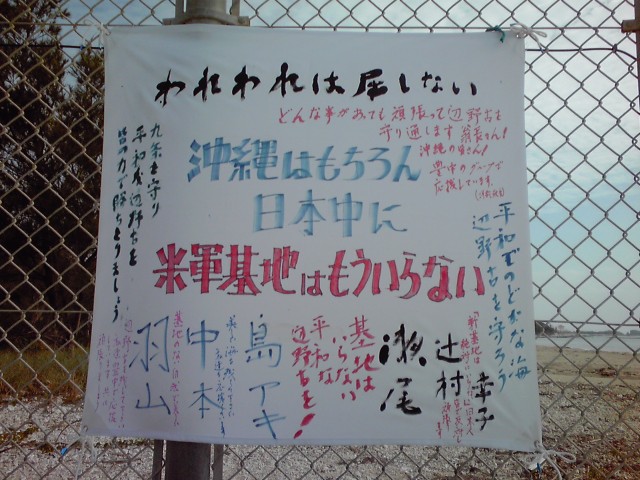 われわれは屈しない
どんな事があても頑張って辺野古を
守り通します 翁長さん!
沖縄の皆さん!
豊中のグループで
応援しています
沖縄はもちろん
日本中に
米軍基地はもういらない
九条を守り
平和な辺野古を
皆の力で勝ちとりましょう
平和でのどかな海
辺野古を守ろう
幸子
辻村
瀬尾
基地は
いらない
平和な
辺野古を!
島アキ
中本
羽山